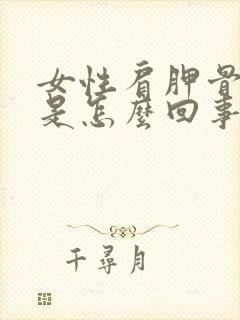 女性肩胛骨
是怎麼回事
千尋月